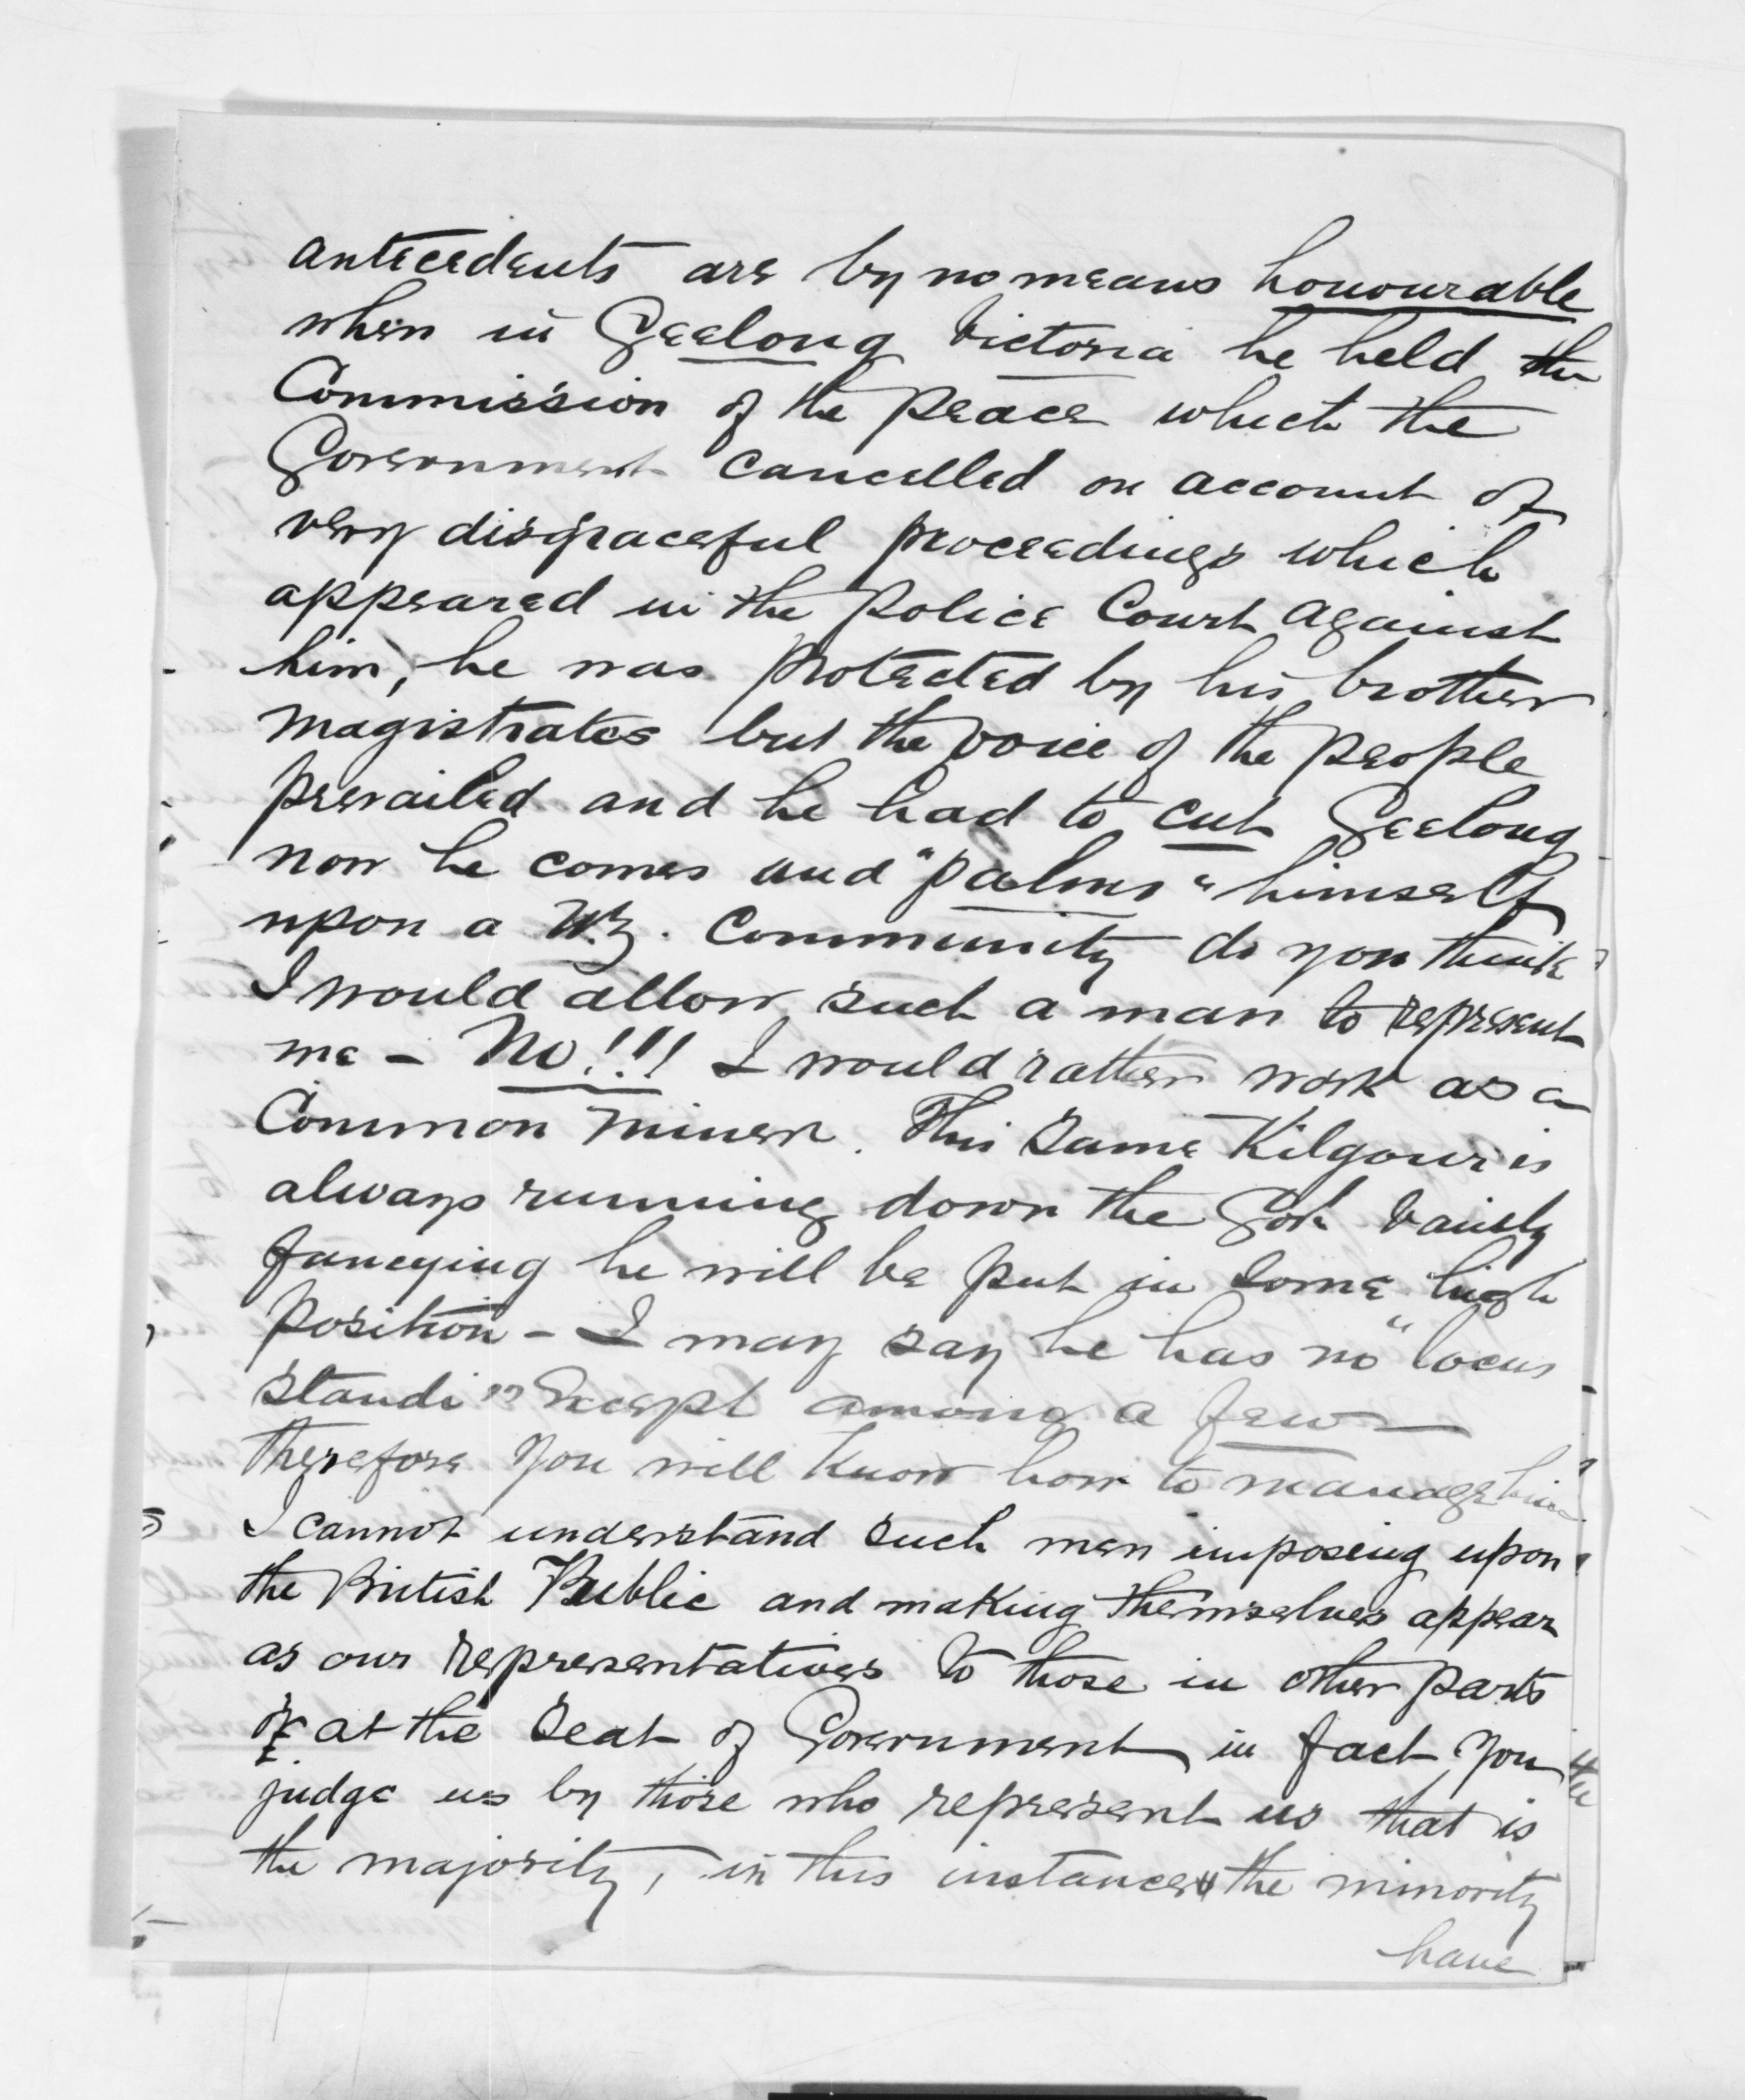 antecedents are by no means honourable
when in Geelong Victoria he held the
Commission of the peace which the
Government cancelled on account of
very disgraceful proceedings which
appeared in the Police Court against
him, he was protected by his brother
magistrates but the voice of the people
prevailed and he had to cut Geelong
now he comes and "palms" himself
upon a N.Z. Community do you think
I would allow such a man to represent
me - No!!! I would rather work as a
Common miner. This same Kilgour is
always running down the Govt. vainly
fancying he will be put in some high
position - I may say he has no "locus
standi" Except among a few -
therefore you will know how to manage him
I cannot understand such men imposing upon
the British Public and making themselves appear
as our representatives to those in other parts
or at the Seat of Government in fact you
judge us by those who represent us that is
the majority, in this instance the minority
have